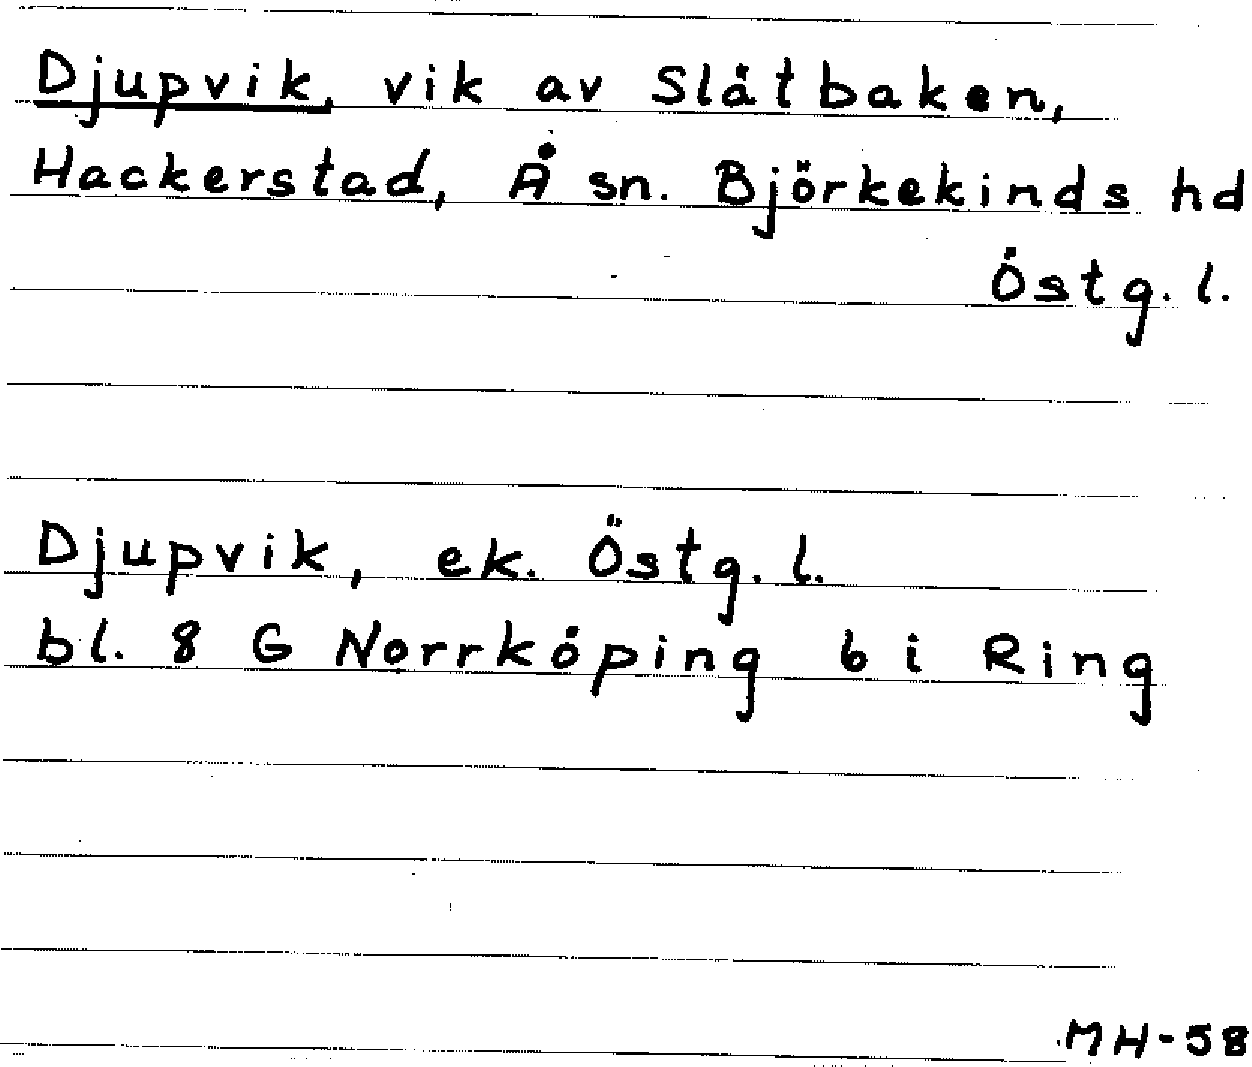 Djupvik, vik av Slåtbaken,
Hackerstad, Å sn. Björkekinds hd
Östg. l.
Djupvik, ek. Östg. l.
bl. 8 G Norrköping 6 i Ring
MH-58